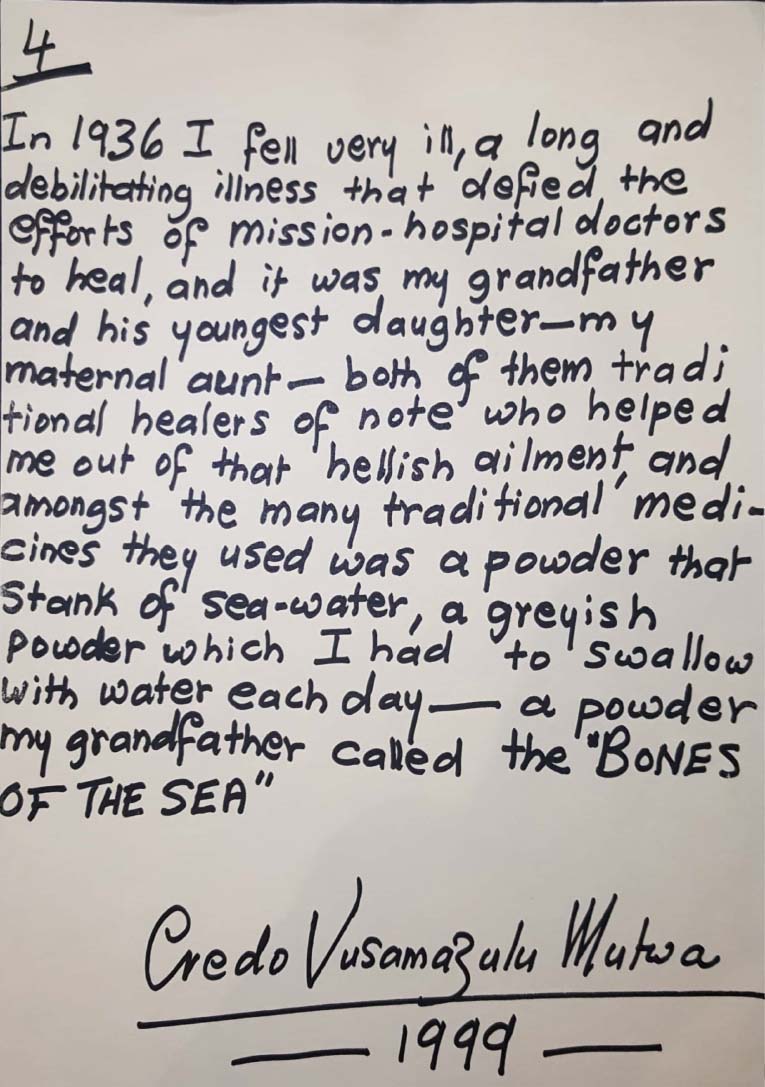 4
In 1936 I fell very ill, a long and
debilitating illness that defied the
efforts of mission-hospital doctors
to heal, and it was my grandfather
and his youngest daughter—my
maternal aunt— both of them tradi
tional healers of note who helped
me out of that hellish ailment, and
amongst the many traditional medi-
cines they used was a powder that
stank of sea-water, a greyish
powder which I had to swallow
with water each day— a powder
my grandfather called the "BONES
OF THE SEA"
Credo Vusamazulu Mutwa
— 1999 —